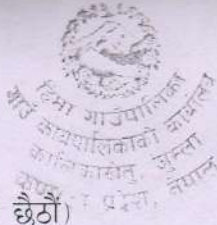 हिमा गाउँपालिका
गाउँ कार्यपालिकाको कार्यालय
कालिकाखेतु, जुम्ला
कर्णाली प्रदेश, नेपाल
छैठौं)